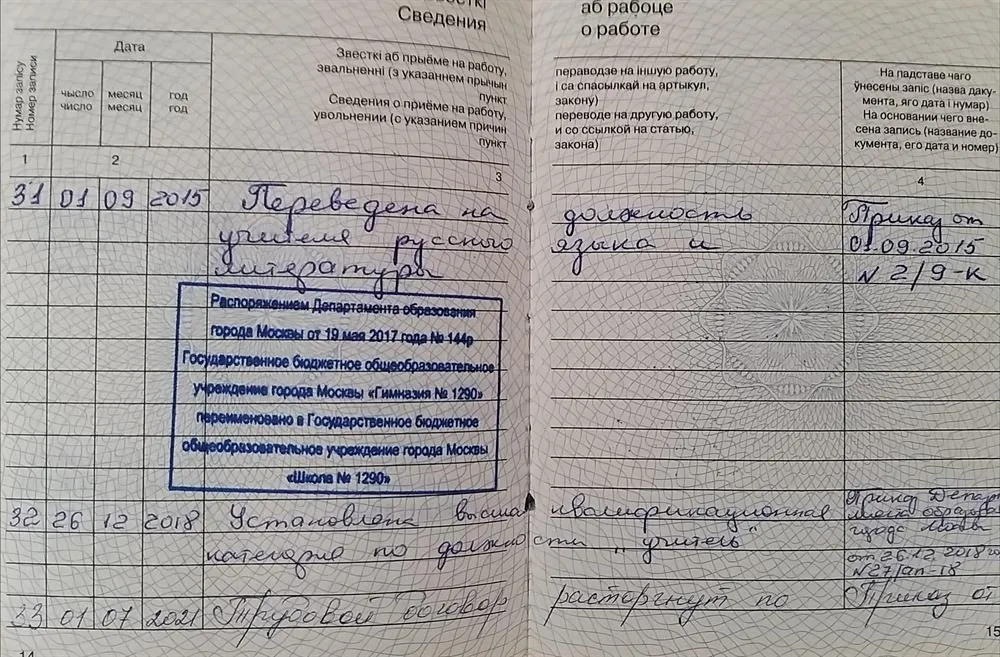 Сведения
аб рабоце
о работе
Нумар запісу
Номер записи
Дата
чысло
число
месяц
месяц
год
год
Звесткі аб прыёме на работу,
звальненні (з указаннем прычын
пункт
Сведения о приёме на работу,
увольнении (с указанием причин
пункт
пераводзе на іншую работу,
і са спасылкай на артыкул,
закону)
переводе на другую работу,
и со ссылкой на статью,
закона)
На падставе чаго
ўнесены запіс (назва даку-
мента, яго дата і нумар)
На основании чего вне-
сена запись (название до-
кумента, его дата и номер)
1 2 3 4
31 01 09 2015 Переведена на должность Приказ от
учителя русского языка и 01.09.2015
литературы N 2/9-к
Распоряжением Департамента образования
города Москвы от 19 мая 2017 года № 144р
Государственное бюджетное общеобразовательное
учреждение города Москвы «Гимназия № 1290»
переименовано в Государственное бюджетное
общеобразовательное учреждение города Москвы
«Школа № 1290»
32 26 12 2018 Установлена высшая квалификационная Приказ Департ
категория по должности „учитель" города Москвы
от 26.12.2018
N 27/ап-18
33 01 07 2021 Трудовой договор расторгнут по Приказ от
14
15